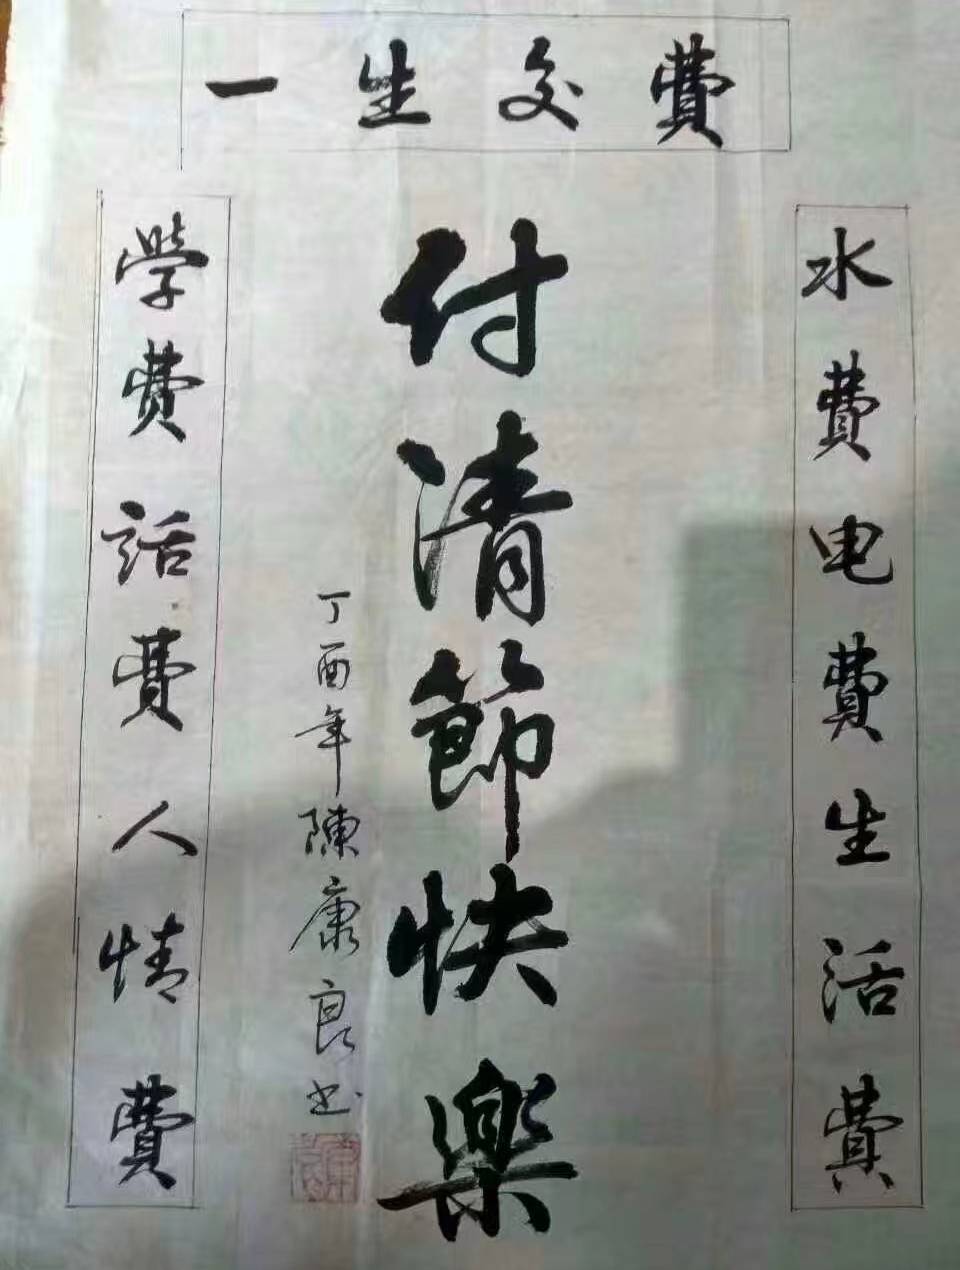 一生交費
水費电費生活費
付清節快樂
丁酉年陳康良书
學費話費人情費